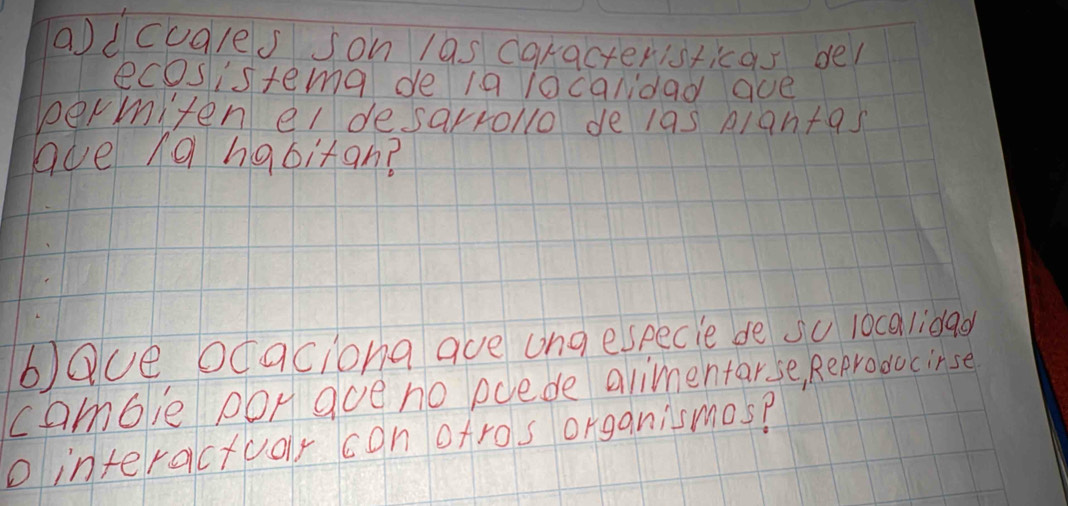 a) ¿cuales son las caracteristicas del
ecosistema de la localidad que
permiten el desarrollo de las plantas
que la habitan?
b) Que ocaciona que una especie de su localidad
cambie por que no puede alimentarse, Reproducirse
o interactuar con otros organismos?